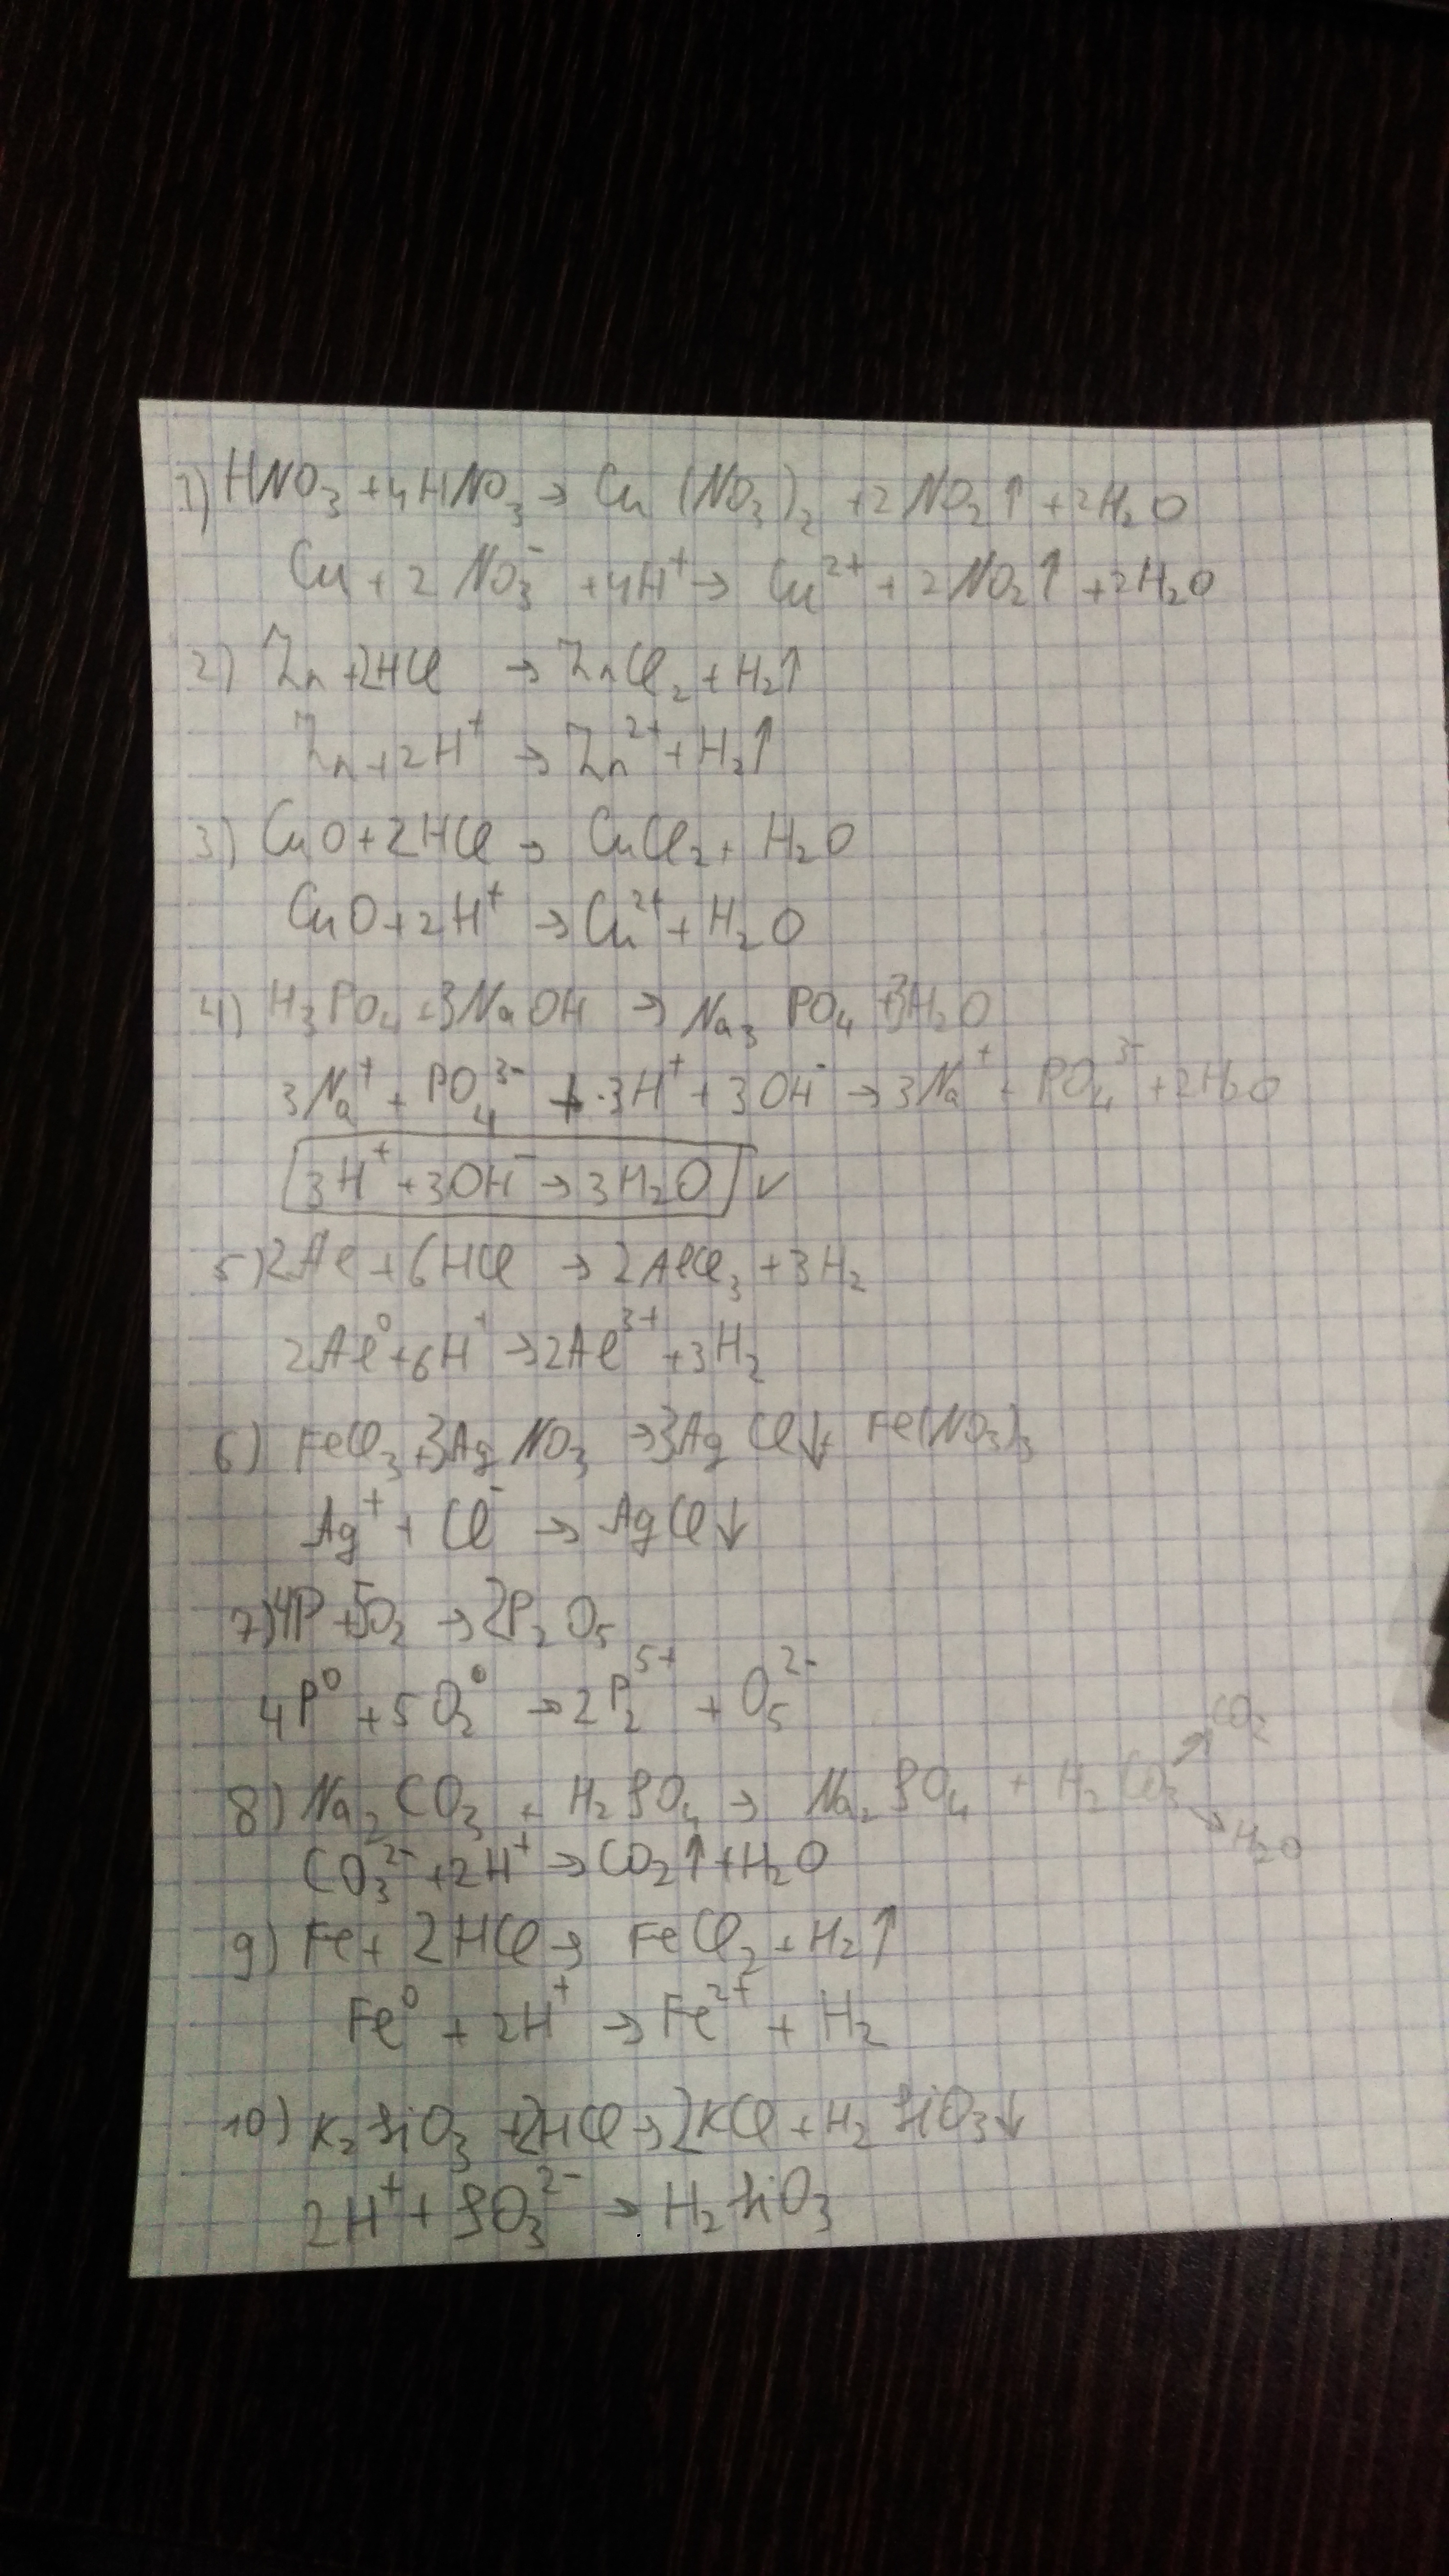 1) HNO₃ + 4HNO₃ → Cu(NO₃)₂ + 2NO₂↑ + 2H₂O
Cu + 2NO₃⁻ + 4H⁺ → Cu²⁺ + 2NO₂↑ + 2H₂O
2) Zn + 2HCl → ZnCl₂ + H₂↑
Zn + 2H⁺ → Zn²⁺ + H₂↑
3) CuO + 2HCl → CuCl₂ + H₂O
CuO + 2H⁺ → Cu²⁺ + H₂O
4) H₃PO₄ + 3NaOH → Na₃PO₄ + 3H₂O
3Na⁺ + PO₄³⁻ + 3H⁺ + 3OH⁻ → 3Na⁺ + PO₄³⁻ + 2H₂O
3H⁺ + 3OH⁻ → 3H₂O ✓
5) 2Al + 6HCl → 2AlCl₃ + 3H₂
2Al⁰ + 6H⁺ → 2Al³⁺ + 3H₂
6) FeCl₃ + 3AgNO₃ → 3AgCl↓ + Fe(NO₃)₃
Ag⁺ + Cl⁻ → AgCl↓
7) 4P + 5O₂ → 2P₂O₅
4P⁰ + 5O₂⁰ → 2P₂⁵⁺ + O₅²⁻
8) Na₂CO₃ + H₂SO₄ → Na₂SO₄ + H₂CO₃ ↗ CO₂ ↘ H₂O
CO₃²⁻ + 2H⁺ → CO₂↑ + H₂O
9) Fe + 2HCl → FeCl₂ + H₂↑
Fe⁰ + 2H⁺ → Fe²⁺ + H₂
10) K₂SiO₃ + 2HCl → 2KCl + H₂SiO₃↓
2H⁺ + SO₃²⁻ → H₂SiO₃